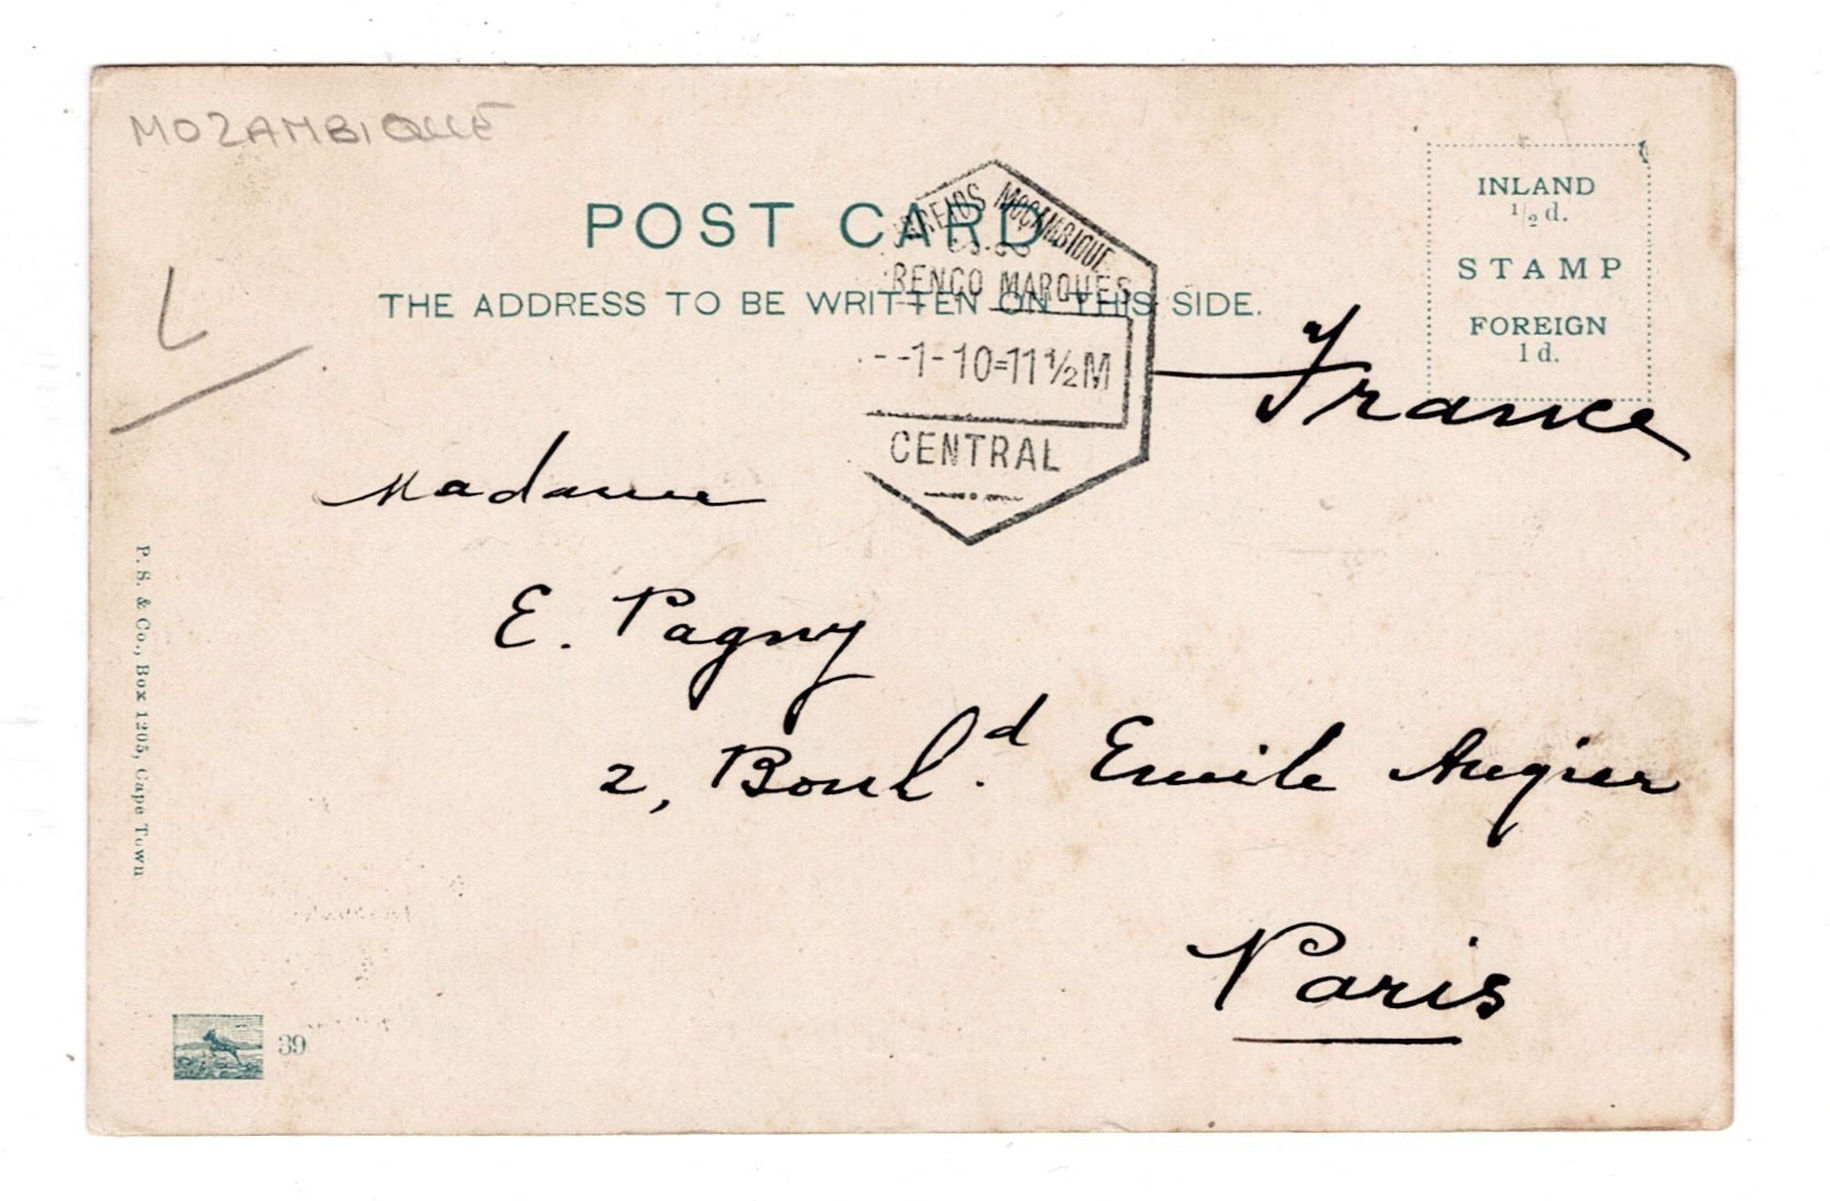 MOZAMBIQUE
POST CARD.
THE ADDRESS TO BE WRITTEN ON THIS SIDE.
INLAND
1/2 d.
STAMP
FOREIGN
1d.
RREIOS MOÇAMBIQUE
RENÇO MARQUES
--1-10=11½M
CENTRAL
France
Madame
E. Pagny
2, Boul.d Emile Augier
Paris
P. S. & Co., Box 1205, Cape Town
39